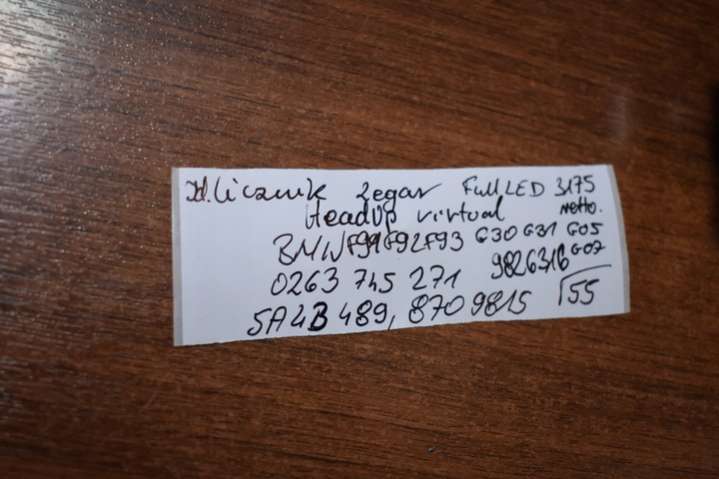 Licznik Zegar Full LED 3175
HeadUp virtual netto.
BMW F91 F92 F93 G30 G31 G05
0263 745 271 9826316 G07
5A4B489, 8709815 55